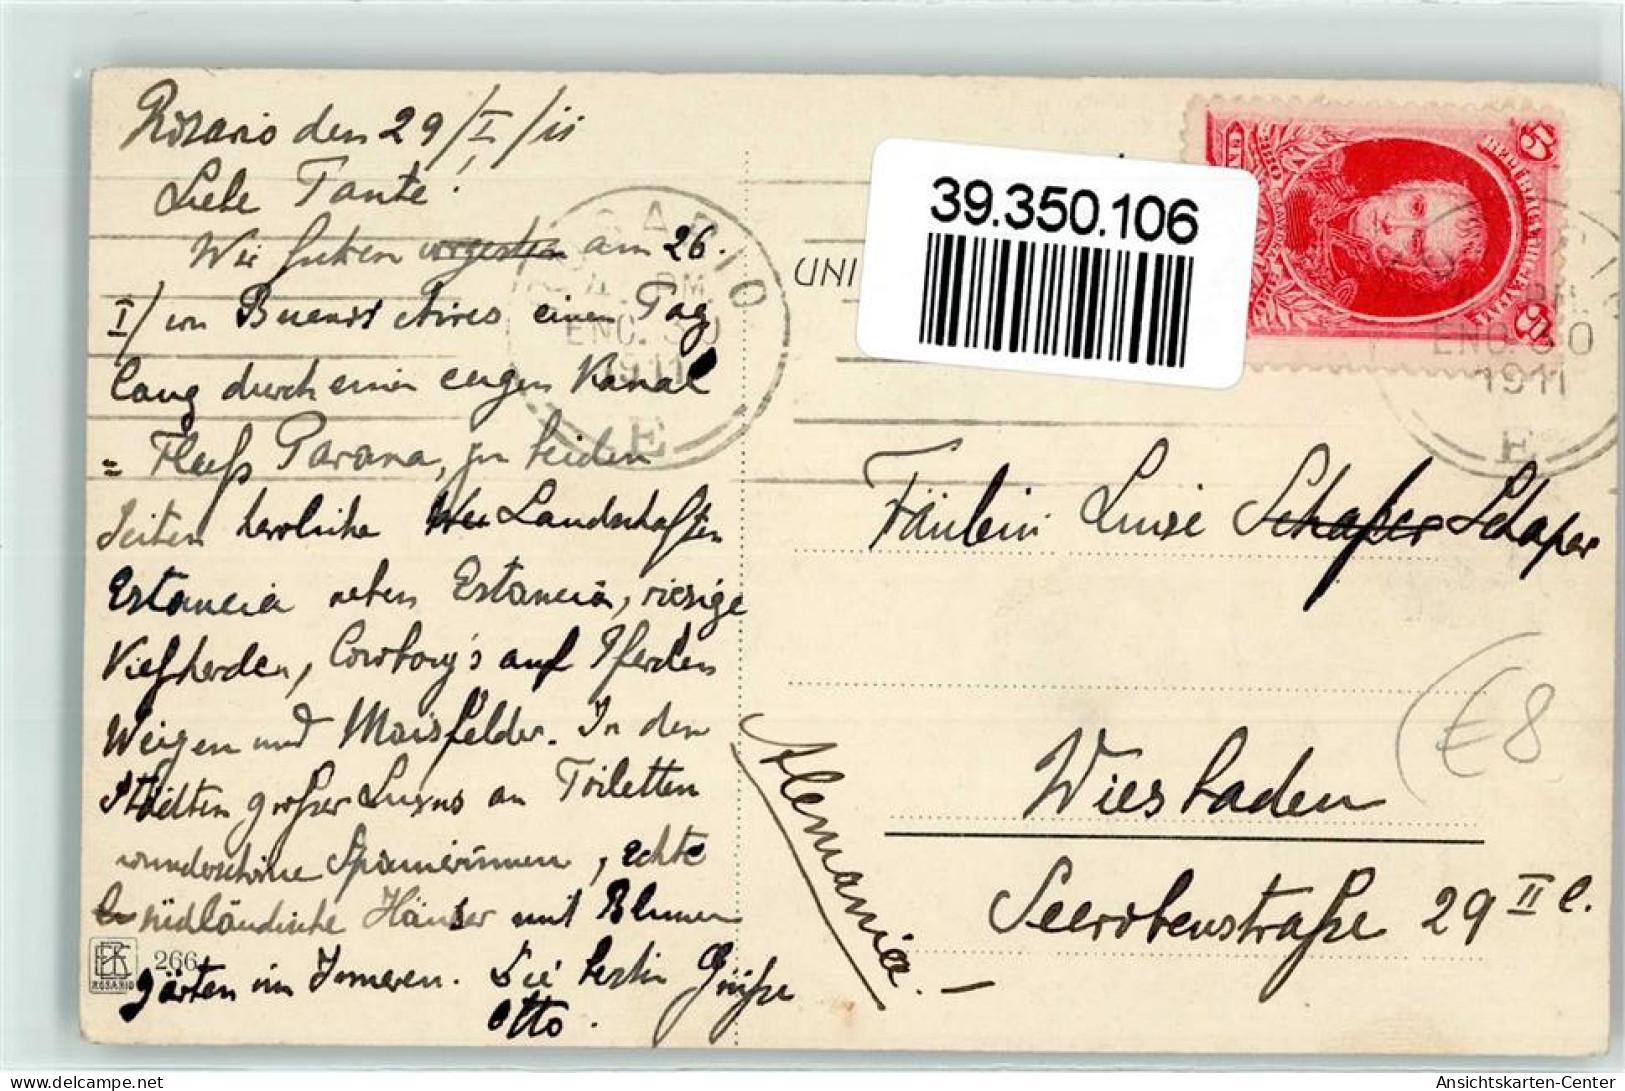 Rosario den 29/I/11
Liebe Tante!
Wir fuhren vorgestern am 26.
I/ von Buenos Aires einen Tag
lang durch einen engen Kanal
= Fluß Parana, zu beiden
Seiten herrliche Landschaften
Estancia neben Estancia, riesige
Viehherden, Cowboy's auf Pferden
Weizen und Maisfelder. In den
Städten großer Luxus an Toiletten
wunderschöne Spanierinnen, echte
südländische Häuser mit Blumen
gärten im Inneren. Die besten Grüße
Otto.
266
ROSARIO
ROSARIO
4 PM
ENO. 30
1911
E
UNI
39.350.106
REPÚBLICA ARGENTINA
5
5
ENO. 30
1911
E
Fräulein Luise Schaper Schaper
Wiesbaden
Seerobenstraße 29 II l.
Alemania.
€8
www.delcampe.net
Ansichtskarten-Center